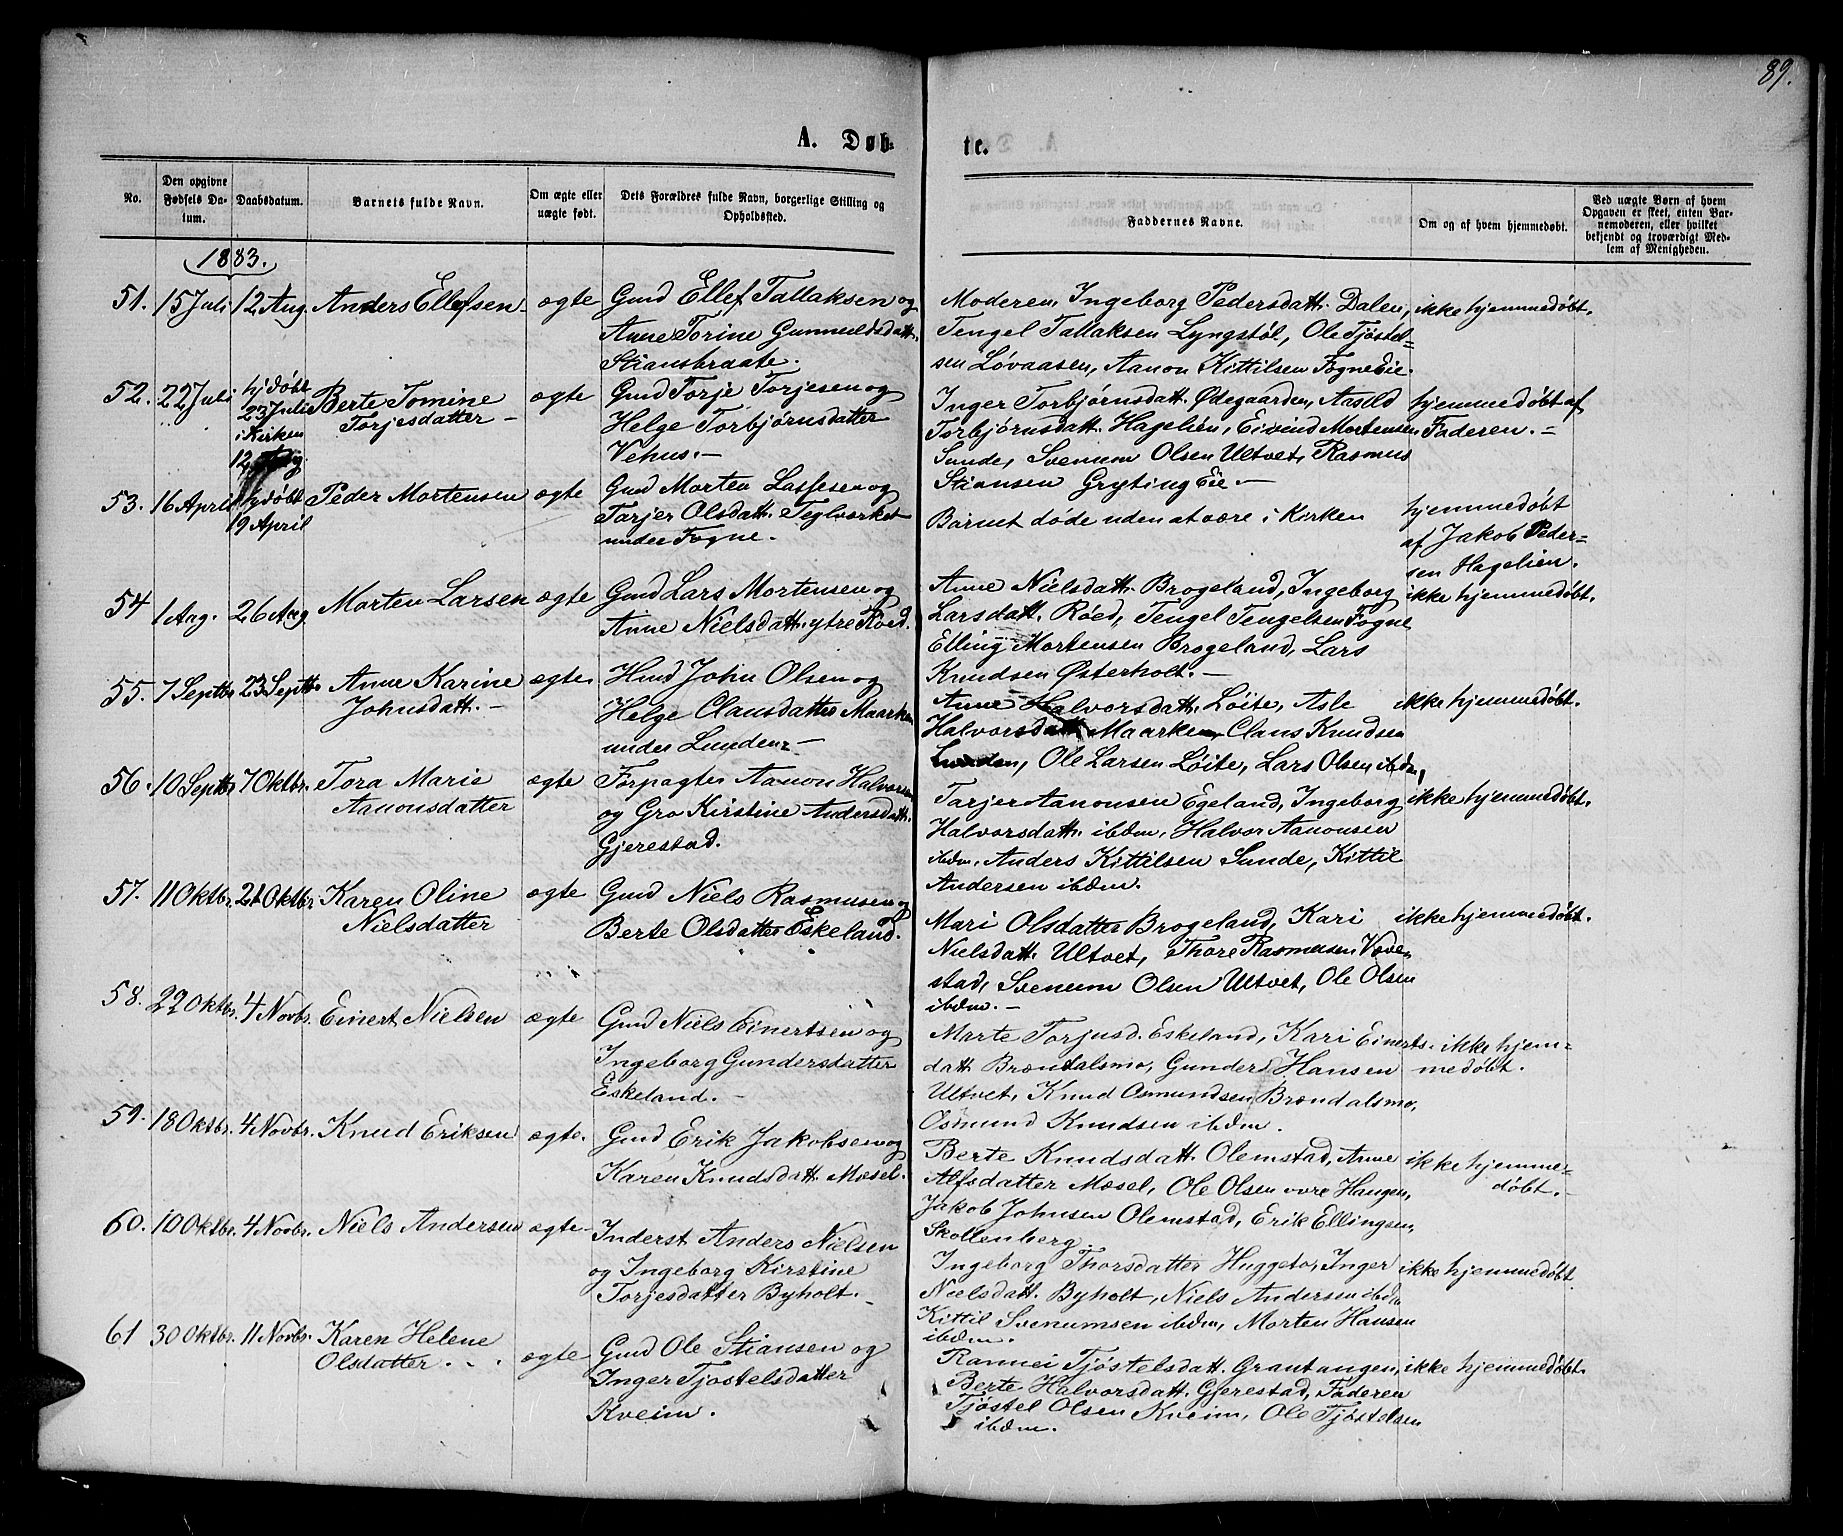 89.
A. Døb-
te.
No.
Den opgivne Fødsels Da-tum.
Daabsdatum.
Barnets fulde Navn.
Om ægte eller uægte født.
Dets Forældres fulde Navn, borgerlige Stilling og Opholdsfted.
Faddernes Navne.
Om og af hvem hjemmedøbt.
Ved uægte Børn af hvem Opgaven er skeet, enten Bar-nemoderen, eller hvilket bekjendt og troværdigt Med-lem af Menigheden.
1883.
51. 15 Juli 12 Aug. Anders Ellefsen ægte Gmd Ellef Tallaksen og
Anne Torine Gunnuldsdatt.
Stiansbraate.
Moderen Ingeborg Pedersdatt. Dalen, ikke hjemmedøbt.
Tengel Tallaksen Lyngstøl, Ole Tjøstel-
sen Løvaasen, Aanon Kittilsen FogneEie.
52. 22 Juli hjdøbt Berte Tomine ægte Gmd Torje Torjesen og
23 Juli Torjesdatter Helge Torbjørnsdatter
i Kirken Vehus.
12 Aug.
Inger Torbjørnsdatt. Ødegaarden, Aasild hjemmedøbt af
Torbjørnsdatt. Hagelien, Eivind Mortensen Faderen.
Sunde, Svenum Olsen Ultvet, Rasmus
Stiansen Gryting Eie.
53. 16 April hjdøbt Peder Mortensen ægte Gmd Morten Lassesen og
19 April Tarjer Olsdatt. Teglværket
under Fogne.
Barnet døde uden at være i Kirken hjemmedøbt
af Jakob Peder-
sen Hagelien.
54 1 Aug. 26 Aug Morten Larsen ægte Gmd Lars Mortensen og
Anne Nielsdatt. ytre Røed.
Anne Nielsdatt. Brogeland, Ingeborg ikke hjemmedøbt.
Larsdatt. Røed, Tengel Tengelsen Fogne
Elling Mortensen Brogeland, Lars
Knudsen Østerholt.
55. 7 Septbr 23 Septbr Anne Karine ægte. Hmd John Olsen og
Johnsdatt. Helge Clausdatter Maarken
under Lunden
Anne Halvorsdatt. Løite, Asle ikke hjemmedøbt.
Halvorsdatt Maarken, Claus Knudsen
Lunden, Ole Larsen Løite, Lars Olsen ibdm,
56. 10 Septbr 7 Oktbr. Tora Marie ægte Forpagter Aanon Halvorsen
Aanonsdatter og Gro Kirstine Andersdatt.
Gjerestad.
Tarjer Aanonsen Egeland, Ingeborg ikke hjemmedøbt.
Halvorsdatt. ibdm, Halvor Aanonsen
ibdm, Anders Kittilsen Sunde, Kittil
Andersen ibdm.
57. 11 Oktbr. 21 Oktbr Karen Oline ægte Gmd Niels Rasmusen og
Nielsdatter Berte Olsdatter Eskeland.
Mari Olsdatter Brogeland, Kari ikke hjemmedøbt.
Nielsdatt. Ultvet, Thore Rasmusen Væve-
stad, Svenum Olsen Ultvet, Ole Olsen
ibdm.
58. 22 Oktbr. 4 Novbr. Einert Nielsen ægte Gmd Niels Einertsen og
Ingeborg Gundersdatter
Eskeland.
Marte Torjusd. Eskeland, Kari Einerts- ikke hjem-
datt Brændalsmo, Gunder Hansen medøbt.
Ultvet, Knud Osmundsen Brændalsmo,
Osmund Knudsen ibdm.
59. 18 Oktbr. 4 Novbr. Knud Eriksen ægte. Gmd Erik Jakobsen og
Karen Knudsdatt. Mæsel.
Berte Knudsdatt. Olemstad, Anne ikke hjemme-
Alfsdatter Mæsel, Ole Olsen øvre Haugen, døbt.
Jakob Johnsen Olemstad, Erik Ellingsen,
Skollenberg.
60. 10 Oktbr. 4 Novbr. Niels Andersen ægte Inderst Anders Nielsen
og Ingeborg Kirstine
Torjesdatter Byholt.
Ingeborg Thorsdatter Huggeto, Inger ikke hjemmedøbt
Nielsdatt. Byholt, Niels Andersen ibdm
Kittil Svenumsen ibdm, Morten Hansen
ibdm.
61 30 Oktbr. 11 Novbr. Karen Helene ægte Gmd Ole Stiansen og
Olsdatter. Inger Tjøstelsdatter
Kveim.
Rannei Tjøstelsdatt. Grantangen, ikke hjemmedøbt.
Berte Halvorsdatt. Gjerestad, Faderen
Tjøstel Olsen Kveim, Ole Tjøstelsen
ibdm.